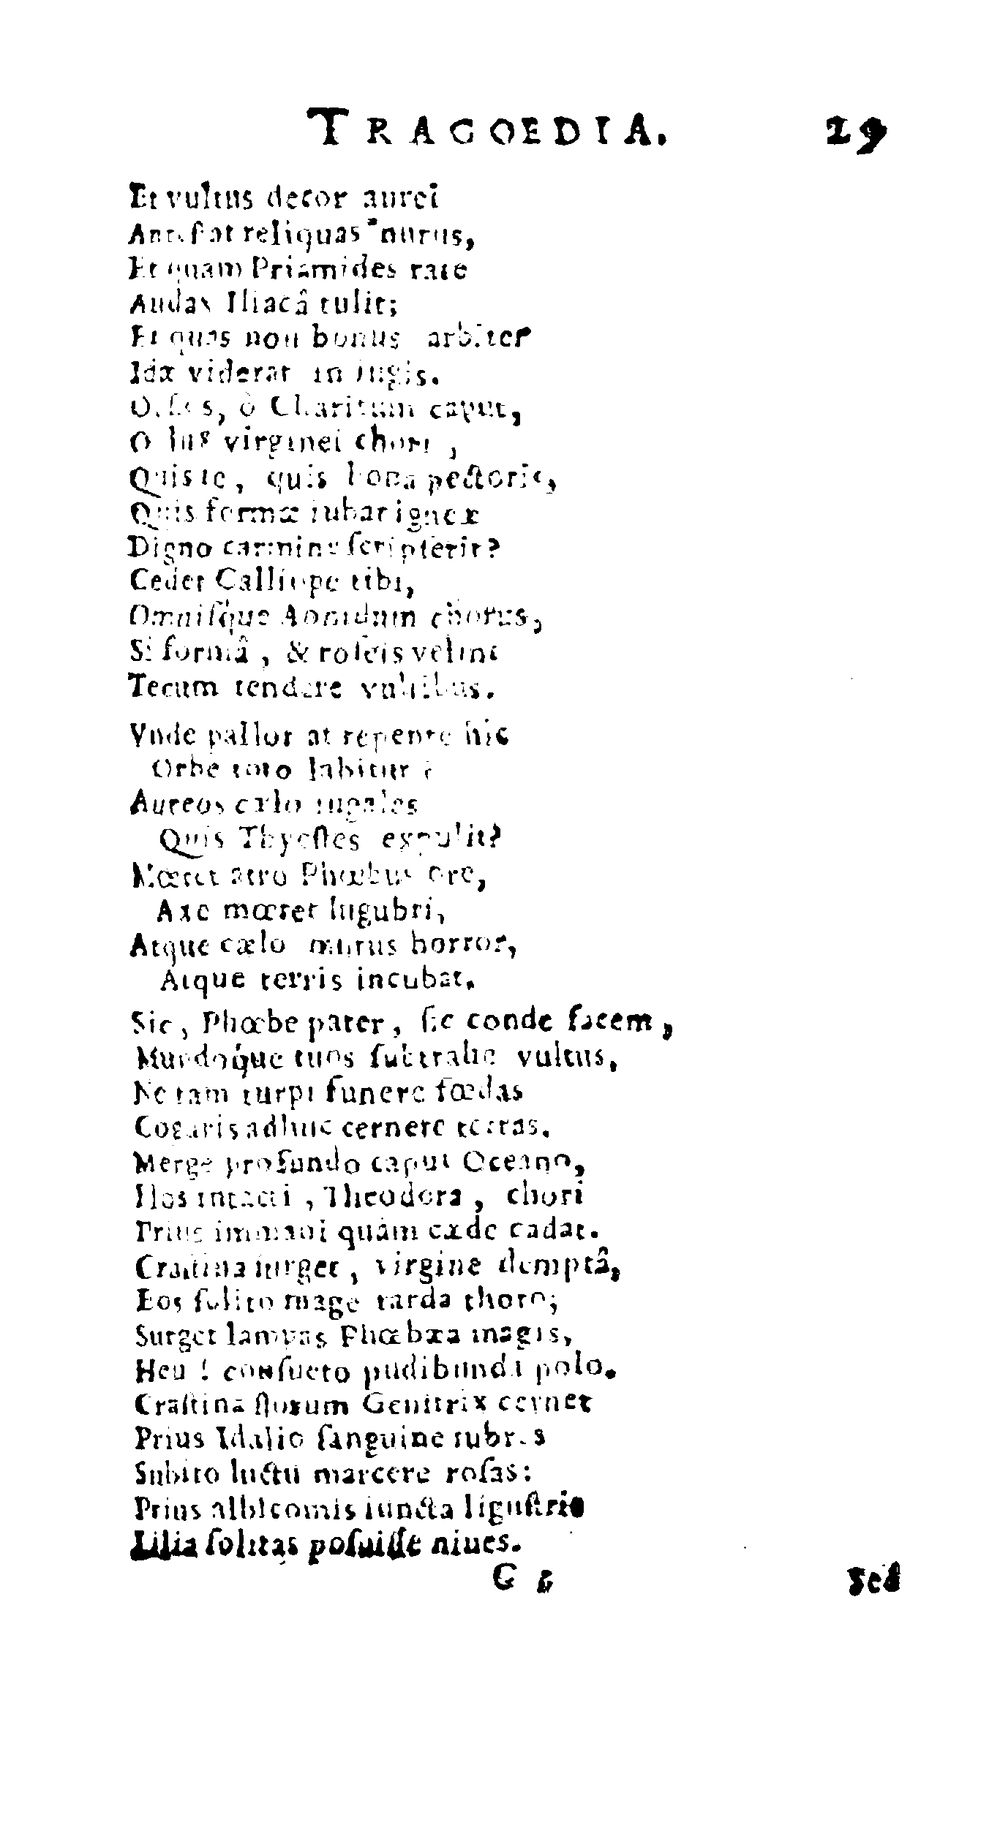 TRAGOEDIA. 29
Et vultus decor aurei
Anteſtat reliquas nurus,
Et quam Priamides rate
Audax Iliacâ tulit;
Et quas non bonus arbiter
Idæ viderat in iugis.
ô Charitum caput,
O lux virginei chori,
Quis te, quis bona pectoris,
Quis formæ iubar igneæ
Digno carmine ſcripſerit?
Cedet Calliope tibi,
Omniſque Aonidum chorus,
Si formâ, & roſeis velint
Tecum tendere vultibus.
Vnde pallor at repente hic
Orbe toto labitur?
Aureos cælo iugales
Quis Thyeſtes expulit?
Mœret atro Phœbus ore,
Axe mœret lugubri,
Atque cælo mutus horror,
Atque terris incubat.
Sic, Phœbe pater, ſic conde facem,
Mundoque tuos ſubtrahe vultus,
Ne tam turpi funere fœdas
Cogaris adhuc cernere terras.
Merge profundo caput Oceano,
Flos intacti, Theodora, chori
Prius immani quàm cæde cadat.
Craſtina ſurget, virgine demptâ,
Eos ſolito mage tarda thoro;
Surget lampas Phœbæa magis,
Heu! conſueto pudibunda polo.
Craſtina florum Genitrix cernet
Prius Idalio ſanguine rubras
Subito luctu marcere roſas:
Prius albicomis iuncta liguſtris
Lilia ſolitas poſuiſſe niues.
G Sed